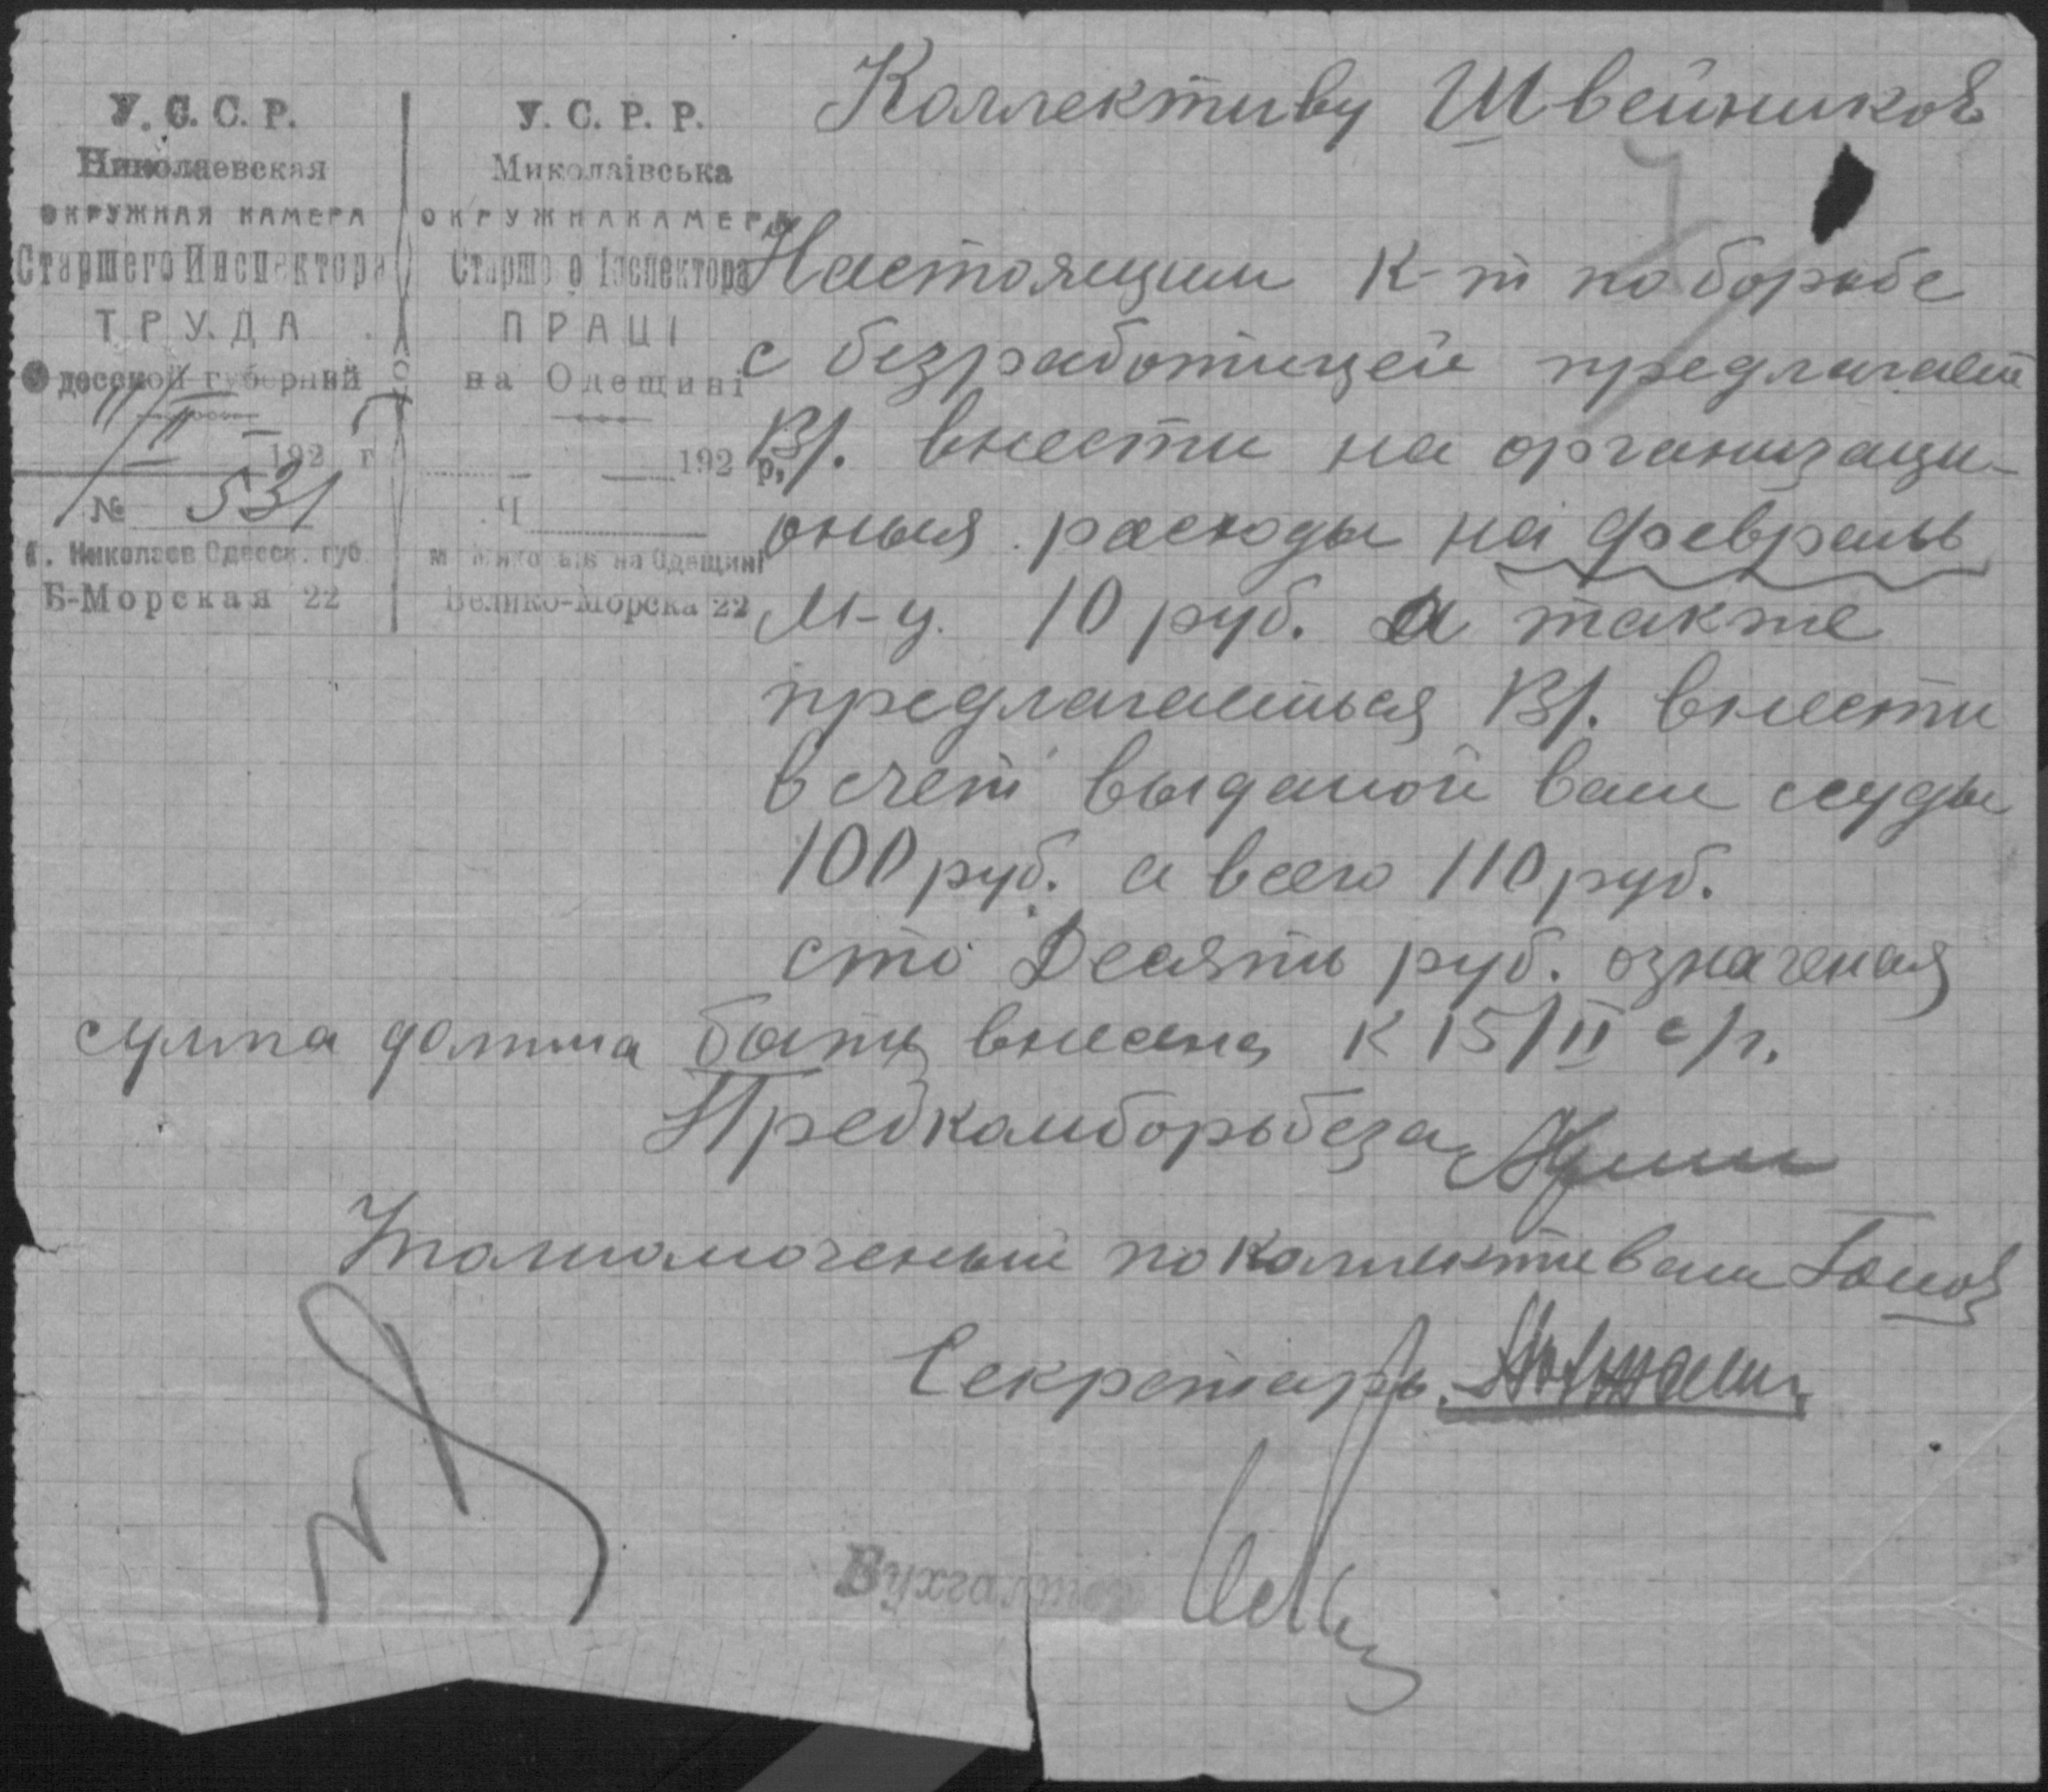 У. С. С. Р.
Николаевская
ОКРУЖНАЯ КАМЕРА
Старшего Инспектора
ТРУДА
Одесской губернии
11/II 192 г
№ 531
г. Николаев Одесск. губ.
Б-Морская 22
У. С. Р. Р.
Миколаівська
ОКРУЖНА КАМЕРА
Старшого Інспектора
ПРАЦІ
на Одещині
192 р.
Ч.
м. Миколаів на Одещині
Велико-Морска 22
Коллективу Швейников
Настоящим к-т по борьбе
с безработицей предлагает
В/. внести на организаци-
оныя расходы на февраль
м-ц. 10 руб. а также
предлагаеться В/. внести
в счет выданой вам ссуды
100 руб. а всего 110 руб.
сто Десять руб. означеная
сумма должна быть внесена к 15/II с/г.
Предкомборьбеза
Уполномоченый по коллективам
Секретарь
Бухгалтер